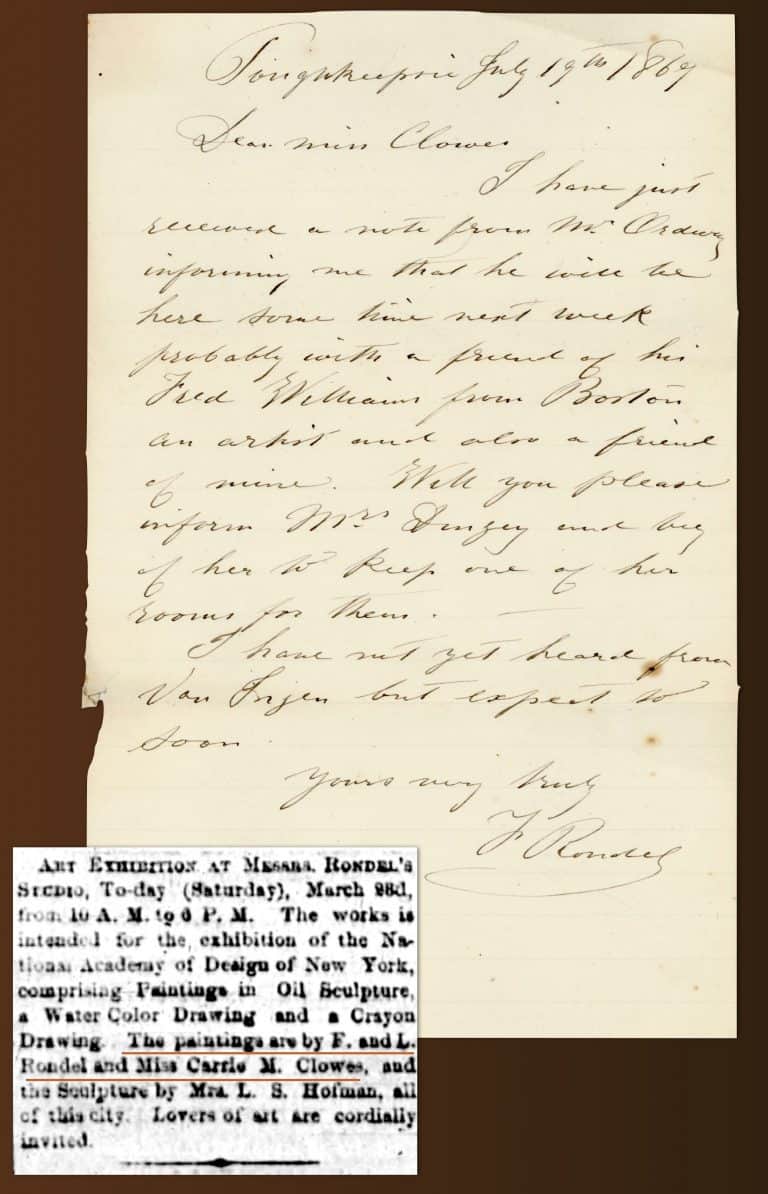 Poughkeepsie July 19th 1869
Dear Miss Clowes
I have just
received a note from Mr Ordway
informing me that he will be
here some time next week
probably with a friend of his
Fred Williams from Boston
an artist and also a friend
of mine. Will you please
inform Mrs Dingey and beg
of her to keep one of her
rooms for them. —
I have not yet heard from
Van Ingen but expect to
soon.
Yours very truly
F Rondel
ART EXHIBITION AT MESSRS. RONDEL'S
STUDIO, To-day (Saturday), March 23d,
from 10 A. M. to 6 P. M. The works is
intended for the exhibition of the Na-
tional Academy of Design of New York,
comprising Paintings in Oil Sculpture,
a Water Color Drawing and a Crayon
Drawing. The paintings are by F. and L.
Rondel and Miss Carrie M. Clowes, and
the Sculpture by Mrs. L. S. Hofman, all
of this city. Lovers of art are cordially
invited.